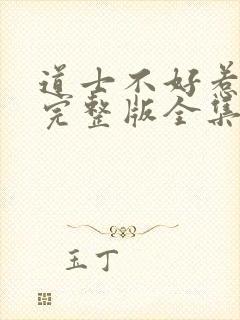 道士不好惹
完整版全集
玉丁